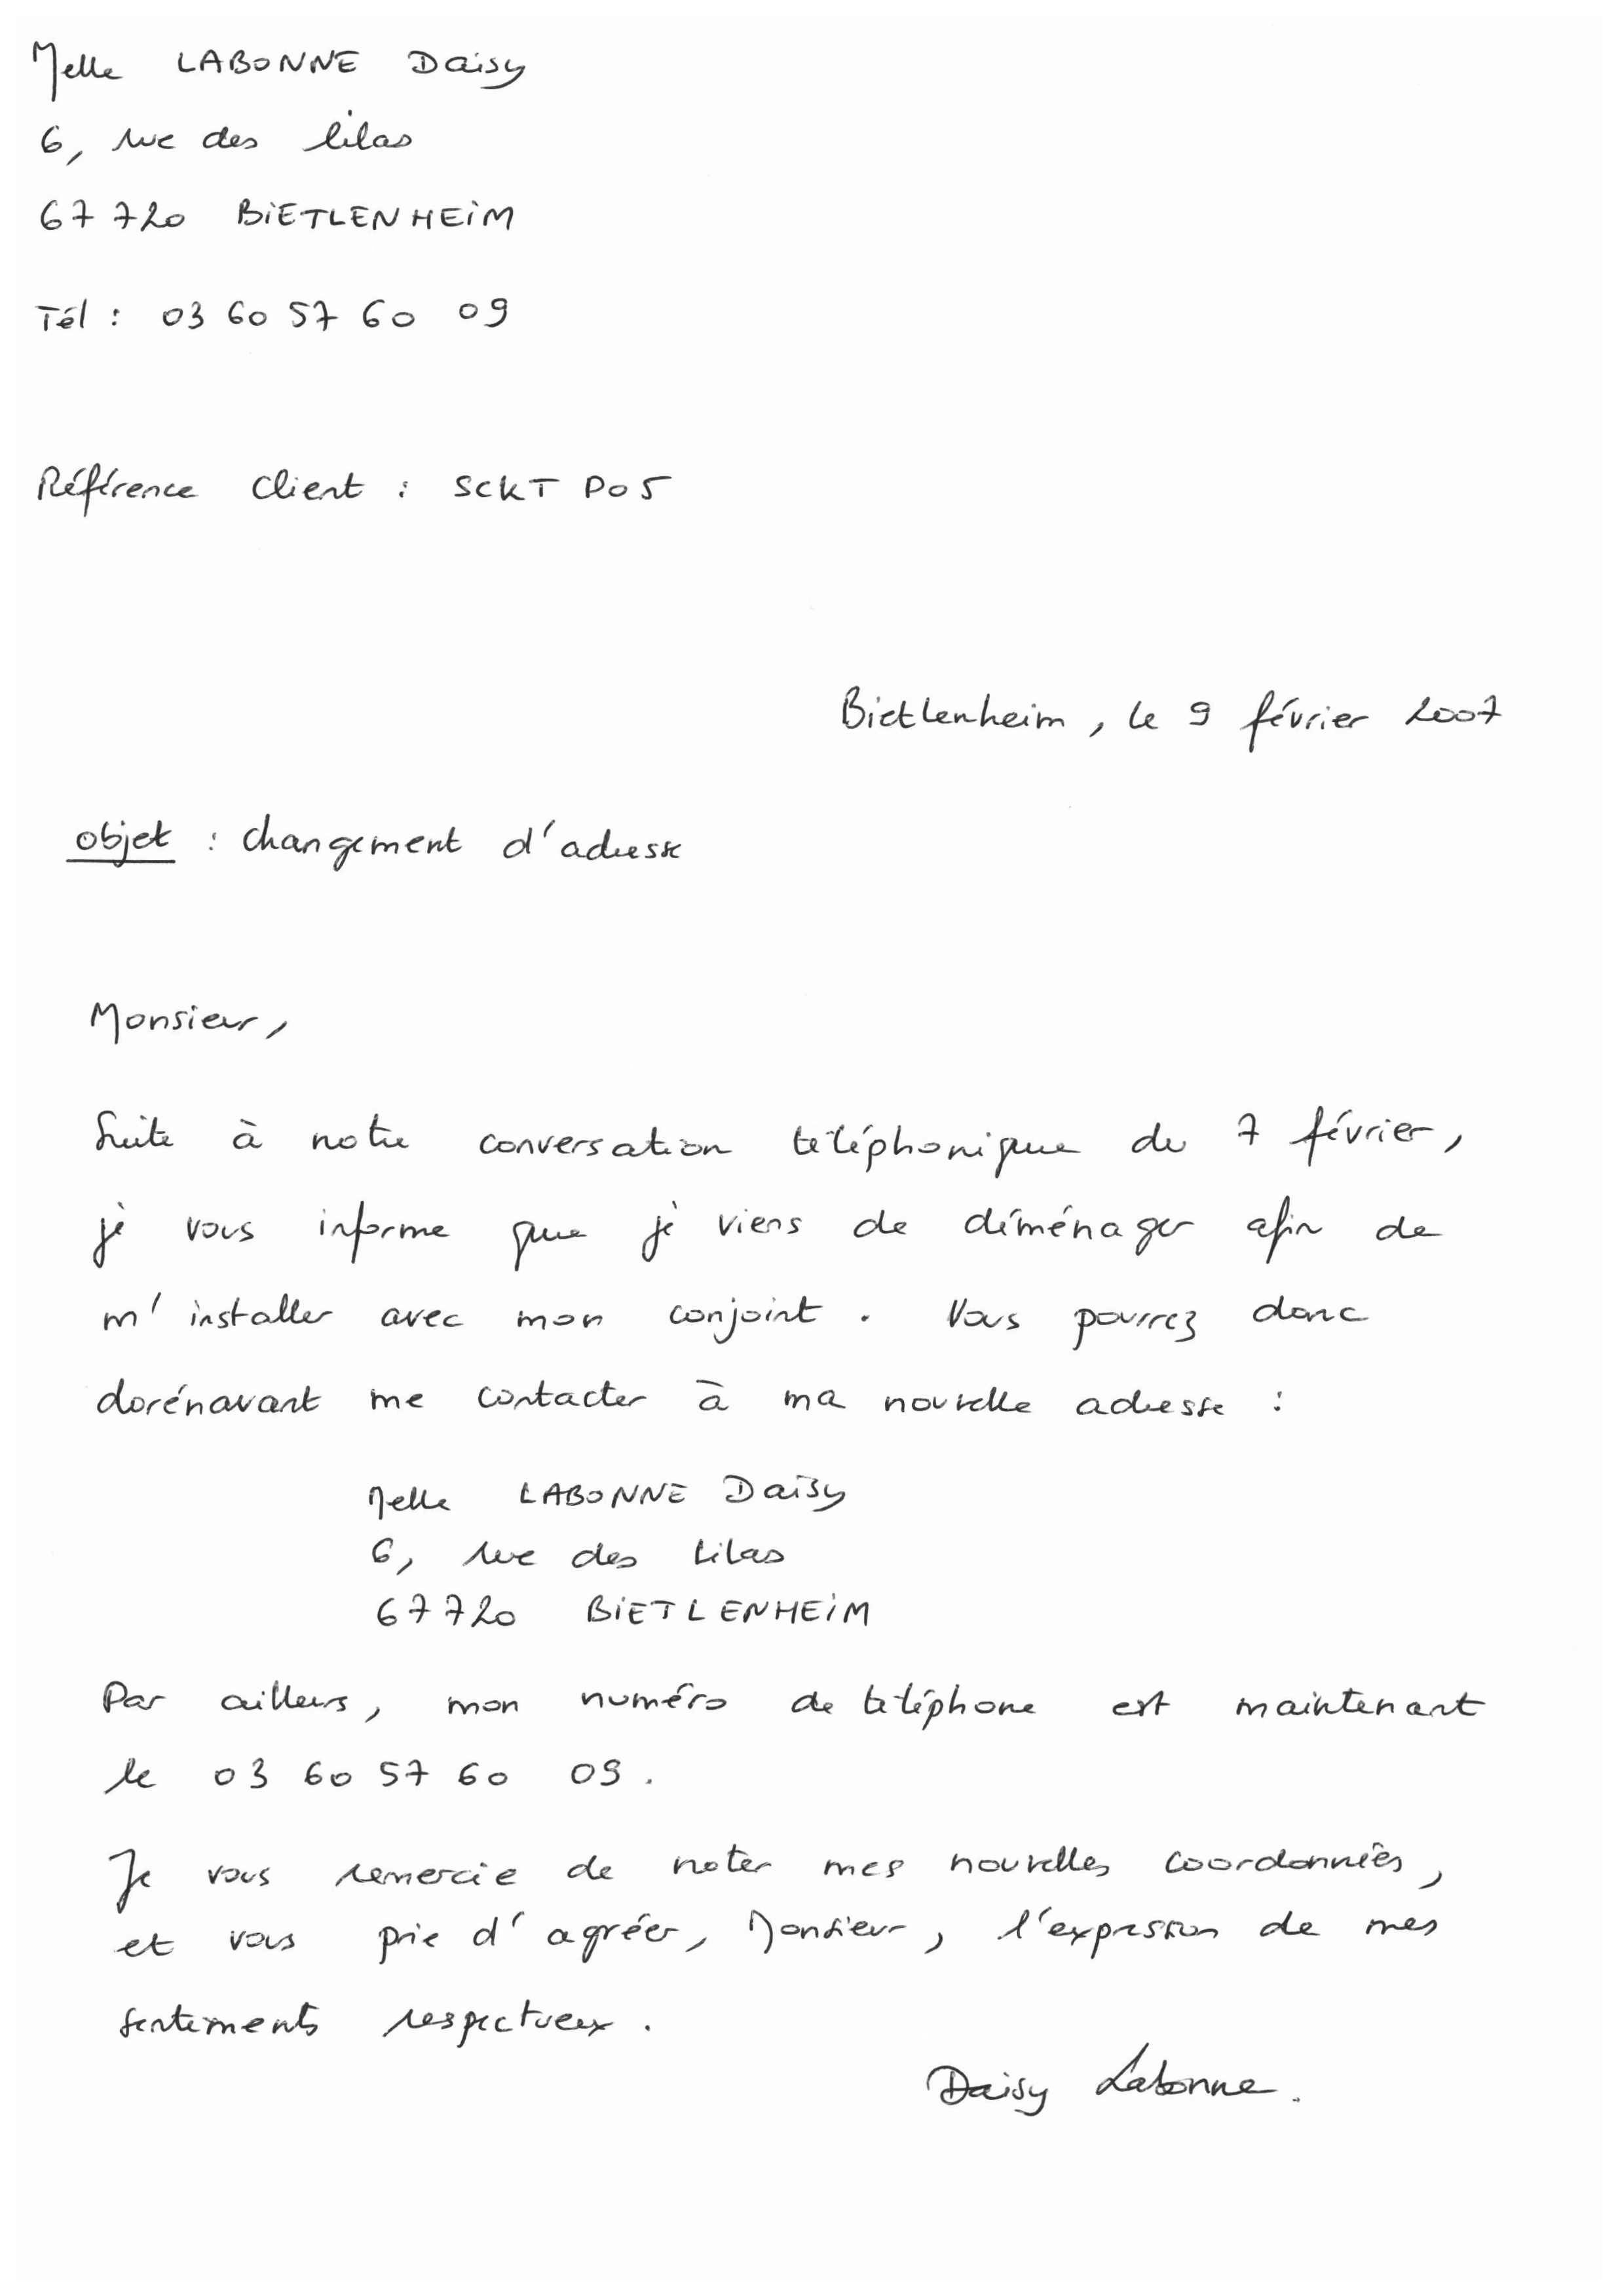 Melle LABONNE Daisy
6, rue des lilas
67720 BIETLENHEIM
Tél : 03 60 57 60 09
Référence Client : SCKT P05
Bietlenheim, le 9 février 2007
objet : changement d'adresse
Monsieur,
Suite à notre conversation téléphonique du 7 février,
je vous informe que je viens de déménager afin de
m'installer avec mon conjoint. Vous pourrez donc
dorénavant me contacter à ma nouvelle adresse :
Melle LABONNE Daisy
6, rue des lilas
67720 BIETLENHEIM
Par ailleurs, mon numéro de téléphone est maintenant
le 03 60 57 60 09.
Je vous remercie de noter mes nouvelles coordonnées,
et vous prie d'agréer, Monsieur, l'expression de mes
sentiments respectueux.
Daisy Labonne.